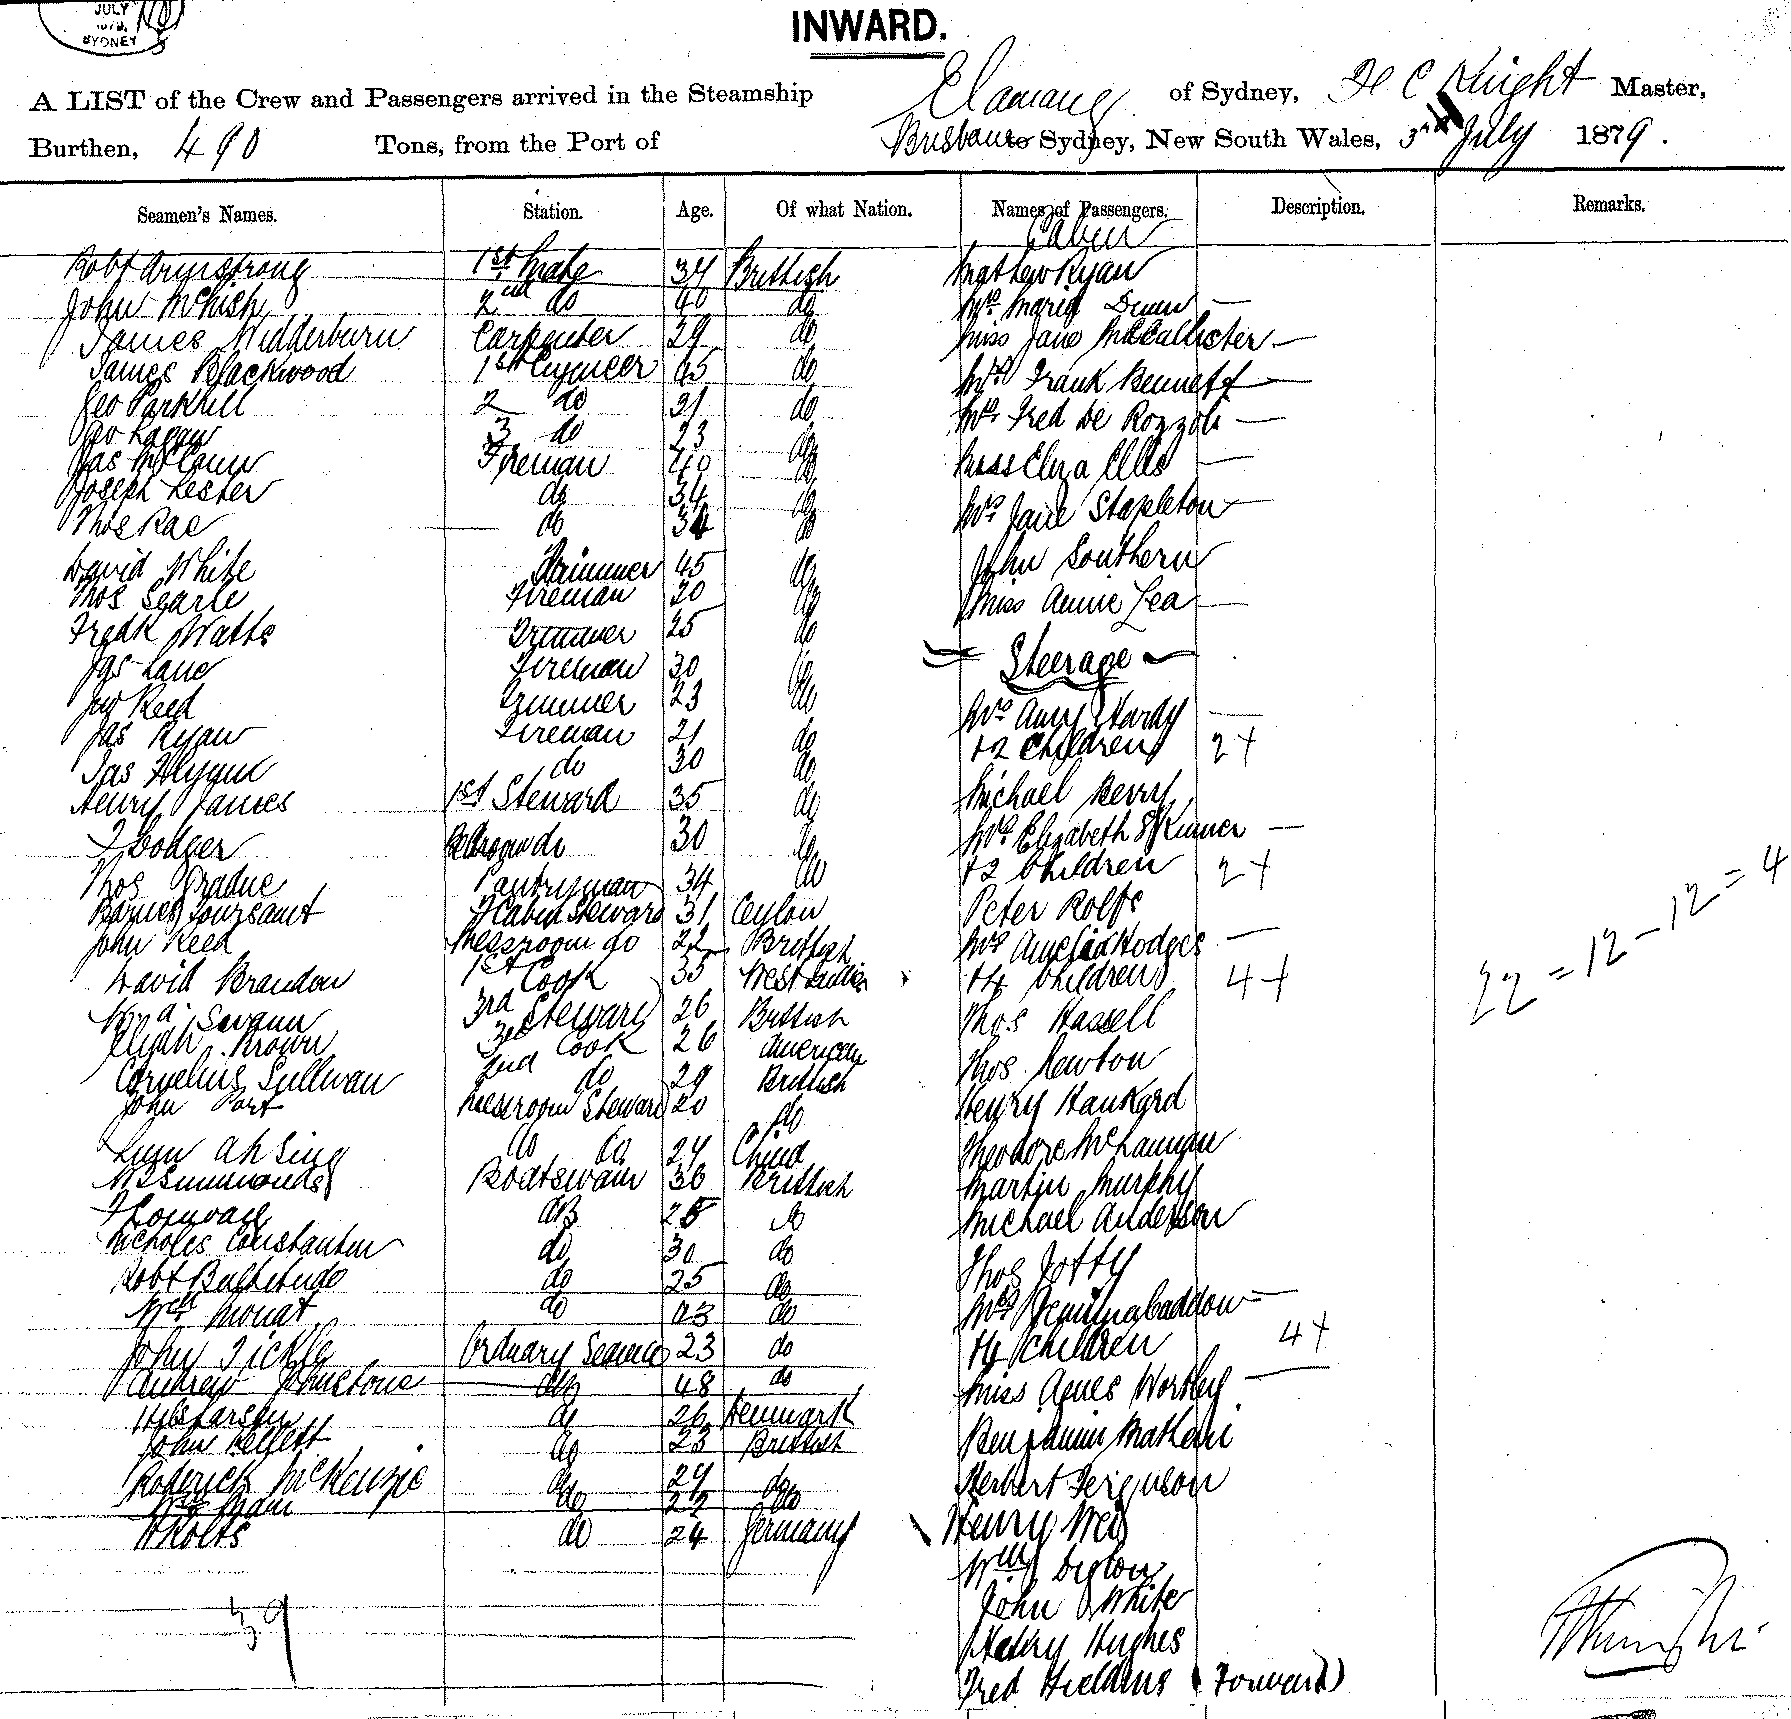 JULY
1879
SYDNEY
INWARD.
A LIST of the Crew and Passengers arrived in the Steamship Elamang of Sydney, H C Knight Master,
Burthen, 490 Tons, from the Port of Brisbane to Sydney, New South Wales, 3rd July 1879.
Seamen's Names. Station. Age. Of what Nation. Names of Passengers. Description. Remarks.
Cabin
Robt Armstrong 1st Mate 34 Brittish Mathew Ryan
John McNish 2nd do 40 do Mrs Maria Dunn —
James Wedderburn Carpenter 29 do Miss Jane McCallister —
James Blackwood 1st Engineer 45 do Mrs Frank Bennett —
Geo Parkhill 2 do 21 do Mrs Fred De Rozzoli —
Geo Logan 3 do 23 do
Jas McCann Fireman 40 do Miss Eliza Ellis —
Joseph Lester do 34 do
Thos Rae do 34 do Mrs Jane Stapleton —
David White Trimmer 45 do John Southern
Thos Searle Fireman 30 do Miss Annie Lea —
Fredk Watts Trimmer 25 do
Jas Lane Fireman 30 do Steerage
Reed Trimmer 23 do Mrs Amy Hardy —
Jas Ryan Fireman 21 do +2 Children 2+
Jas Flynn do 30 do
Henry James 1st Steward 35 do Michael Berry
F Dodger do 30 do Mrs Elizabeth Skinner —
+2 Children 2+
Thos Pradue Pantryman 34 do
Barnes Toursant F Cabin Steward 31 Ceylon Peter Rolfs
John Reed Messroom do 22 Brittish Mrs Amelia Hodges —
David Brandon 1st Cook 35 West Indies +4 Children 4+
22 = 12 - 12 = 4
Swann 3rd Steward 26 Brittish Thos Hassell
Elijah Brown 3rd Cook 26 American Thos Newton
Cornelius Sullivan 2nd do 29 Brittish
John Port Messroom Steward 20 do Henry Hankard
Ah Sing do do 24 China Theodore McLannan
W Simmonds Boatswain 36 Brittish Martin Murphy
F Cornwall AB 25 do Michael Anderson
Nicholes Constantin do 30 do
Robt Bulbitude do 25 do Thos Jotty
Wm Mouat do 23 do Mrs Jemima Caddow —
John Tickle Ordinary Seaman 23 do +4 Children 4+
Andrew Johnstone AB 48 do Miss Agnes Worthy —
Larsen do 26 Denmark
John Kellett do 23 Brittish Benjamin Mathew
Roderick McKenzie do 29 do Herbert Ferguson
Wm Mann do 22 do
W Kolts do 24 Germany Henry Weis
Wm
John White
39 Henry Hughes
Fred Fieldins (Forward)